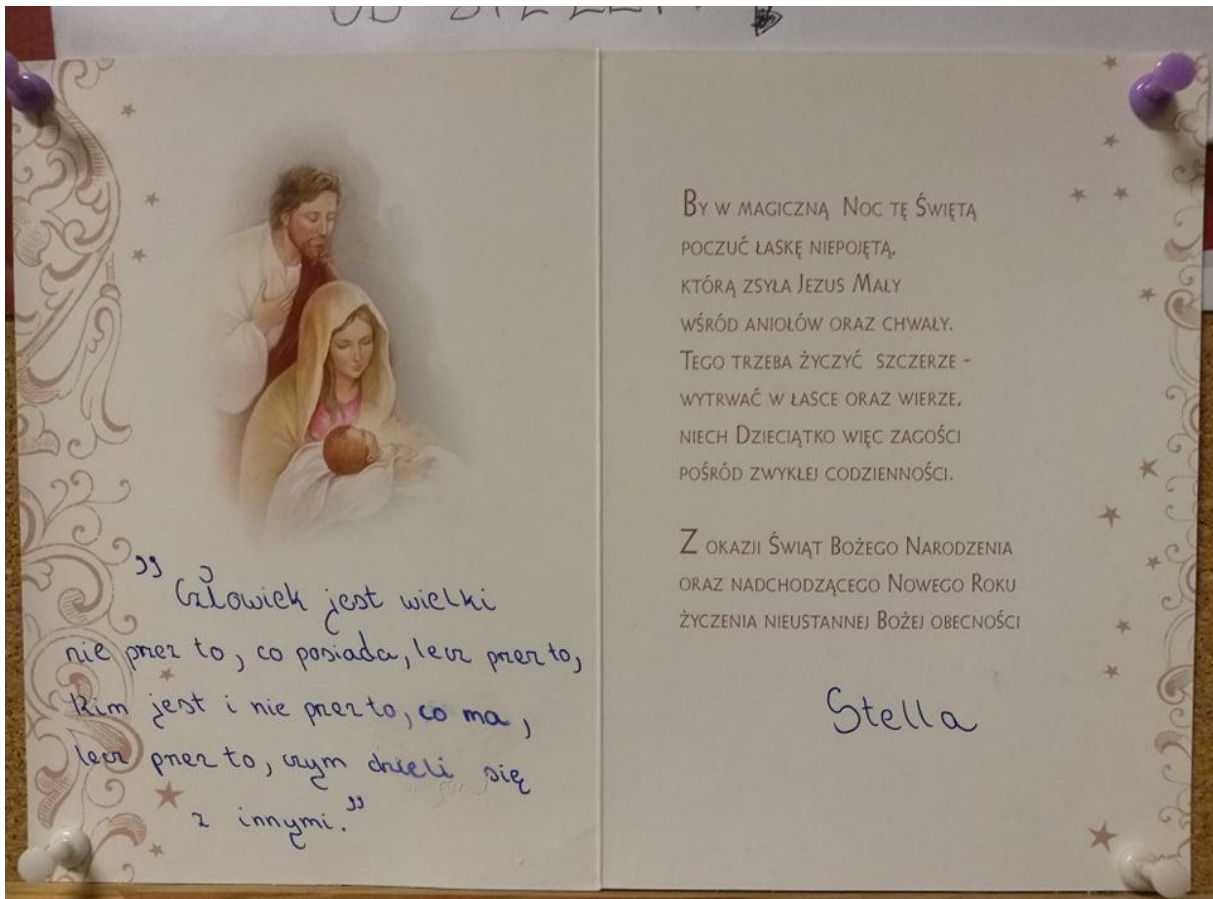 OD STELLI
„Człowiek jest wielki
nie przez to, co posiada, lecz przez to,
kim jest i nie przez to, co ma,
lecz przez to, czym dzieli się
z innymi.”
BY W MAGICZNĄ NOC TĘ ŚWIĘTĄ
POCZUĆ ŁASKĘ NIEPOJĘTĄ,
KTÓRĄ ZSYŁA JEZUS MAŁY
WŚRÓD ANIOŁÓW ORAZ CHWAŁY.
TEGO TRZEBA ŻYCZYĆ SZCZERZE -
WYTRWAĆ W ŁASCE ORAZ WIERZE,
NIECH DZIECIĄTKO WIĘC ZAGOŚCI
POŚRÓD ZWYKŁEJ CODZIENNOŚCI.
Z OKAZJI ŚWIĄT BOŻEGO NARODZENIA
ORAZ NADCHODZĄCEGO NOWEGO ROKU
ŻYCZENIA NIEUSTANNEJ BOŻEJ OBECNOŚCI
Stella